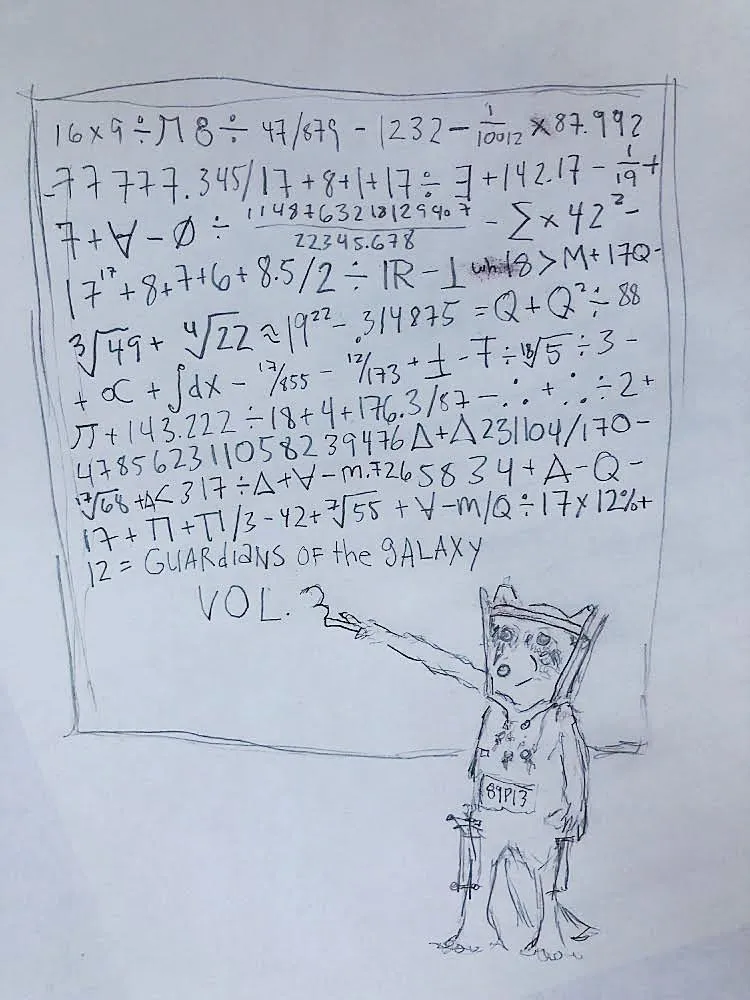 16×9÷π8÷ 47/879 - 1232 - 1/10012 × 87.992
-77777.345/17+8+1+17÷∃+142.17 - 1/19 +
7+∀-Ø÷ 11487632181299407/22345.678 - Σ×42² -
17¹⁷+8+7+6+8.5/2÷IR-⊥ 8>M+17Q-
³√49 + ⁴√22 ≈ 19²² - .314875 = Q+Q²÷88
+ ∝ + ∫dx - 17/855 - 12/173 + 1 - 7÷¹⁸√5÷3 -
π+143.222÷18+4+176.3/87-∴+∴÷2+
478562311058239476Δ+Δ231104/170-
¹⁷√68+Δ<317÷Δ+∀-m.7265834+A-Q-
17+Π+Π/3-42+⁷√55+∀-m/Q÷17×12%+
12 = GUARdiANS OF the gALAXY
VOL. 3
89P13